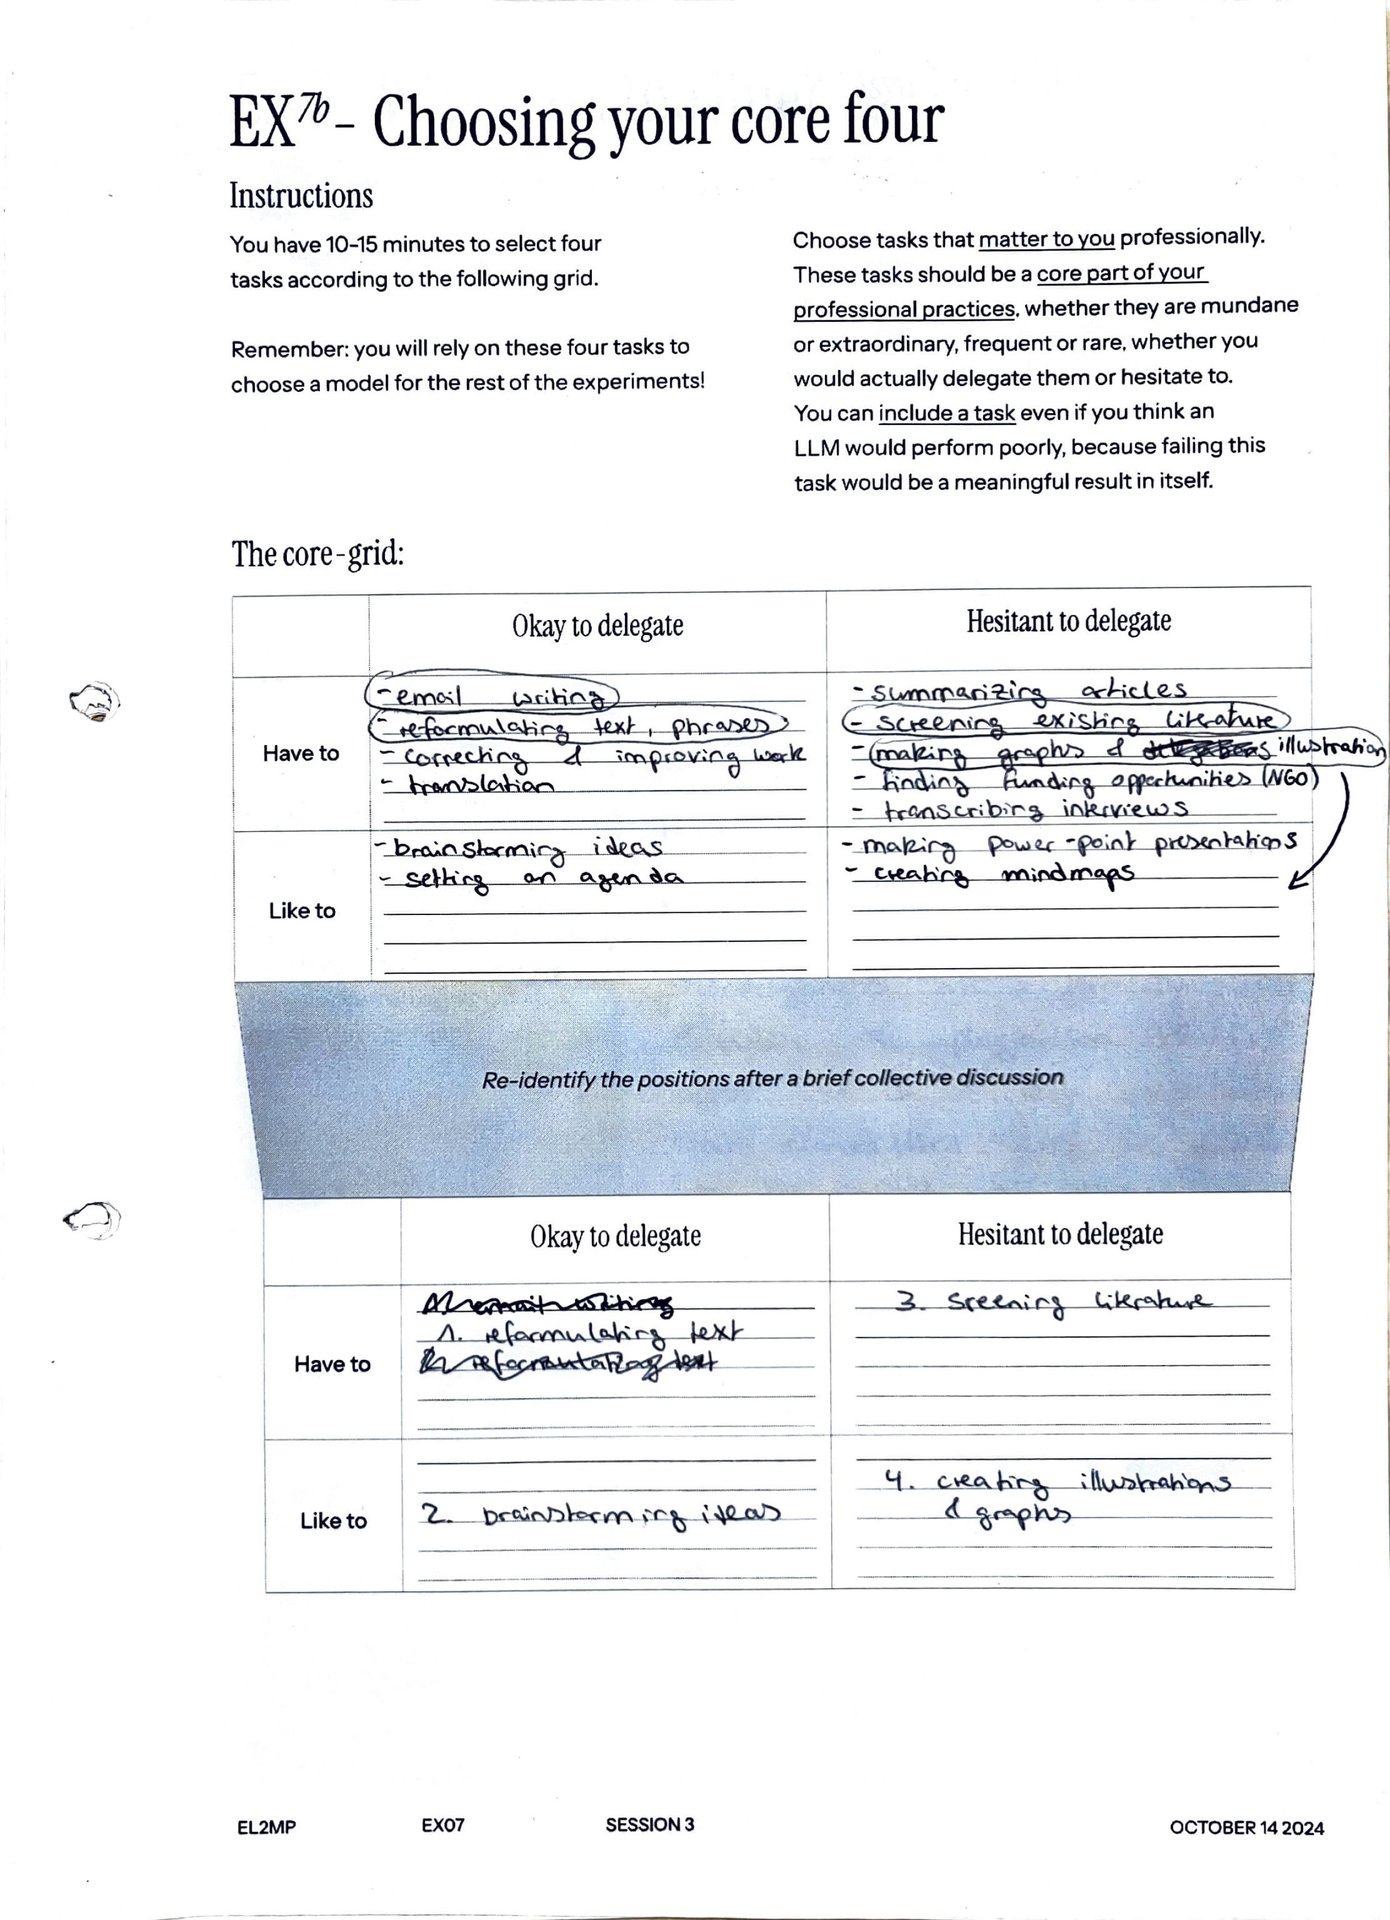 EX7b – Choosing your core four
Instructions
You have 10-15 minutes to select four
tasks according to the following grid.
Remember: you will rely on these four tasks to
choose a model for the rest of the experiments!
Choose tasks that matter to you professionally.
These tasks should be a core part of your
professional practices, whether they are mundane
or extraordinary, frequent or rare, whether you
would actually delegate them or hesitate to.
You can include a task even if you think an
LLM would perform poorly, because failing this
task would be a meaningful result in itself.
The core-grid:
Okay to delegate
Hesitant to delegate
Have to
- email writing
- reformulating text, phrases
- correcting & improving work
- translation
- summarizing articles
- screening existing literature
- making graphs & illustration
- finding funding opportunities (NGO)
- transcribing interviews
Like to
- brainstorming ideas
- setting an agenda
- making power-point presentations
- creating mindmaps
Re-identify the positions after a brief collective discussion
Okay to delegate
Hesitant to delegate
Have to
1. email writing
1. reformulating text
2. reformulating text
3. sreening literature
Like to
2. brainstorming ideas
4. creating illustrations
& graphs
EL2MP
EX07
SESSION 3
OCTOBER 14 2024